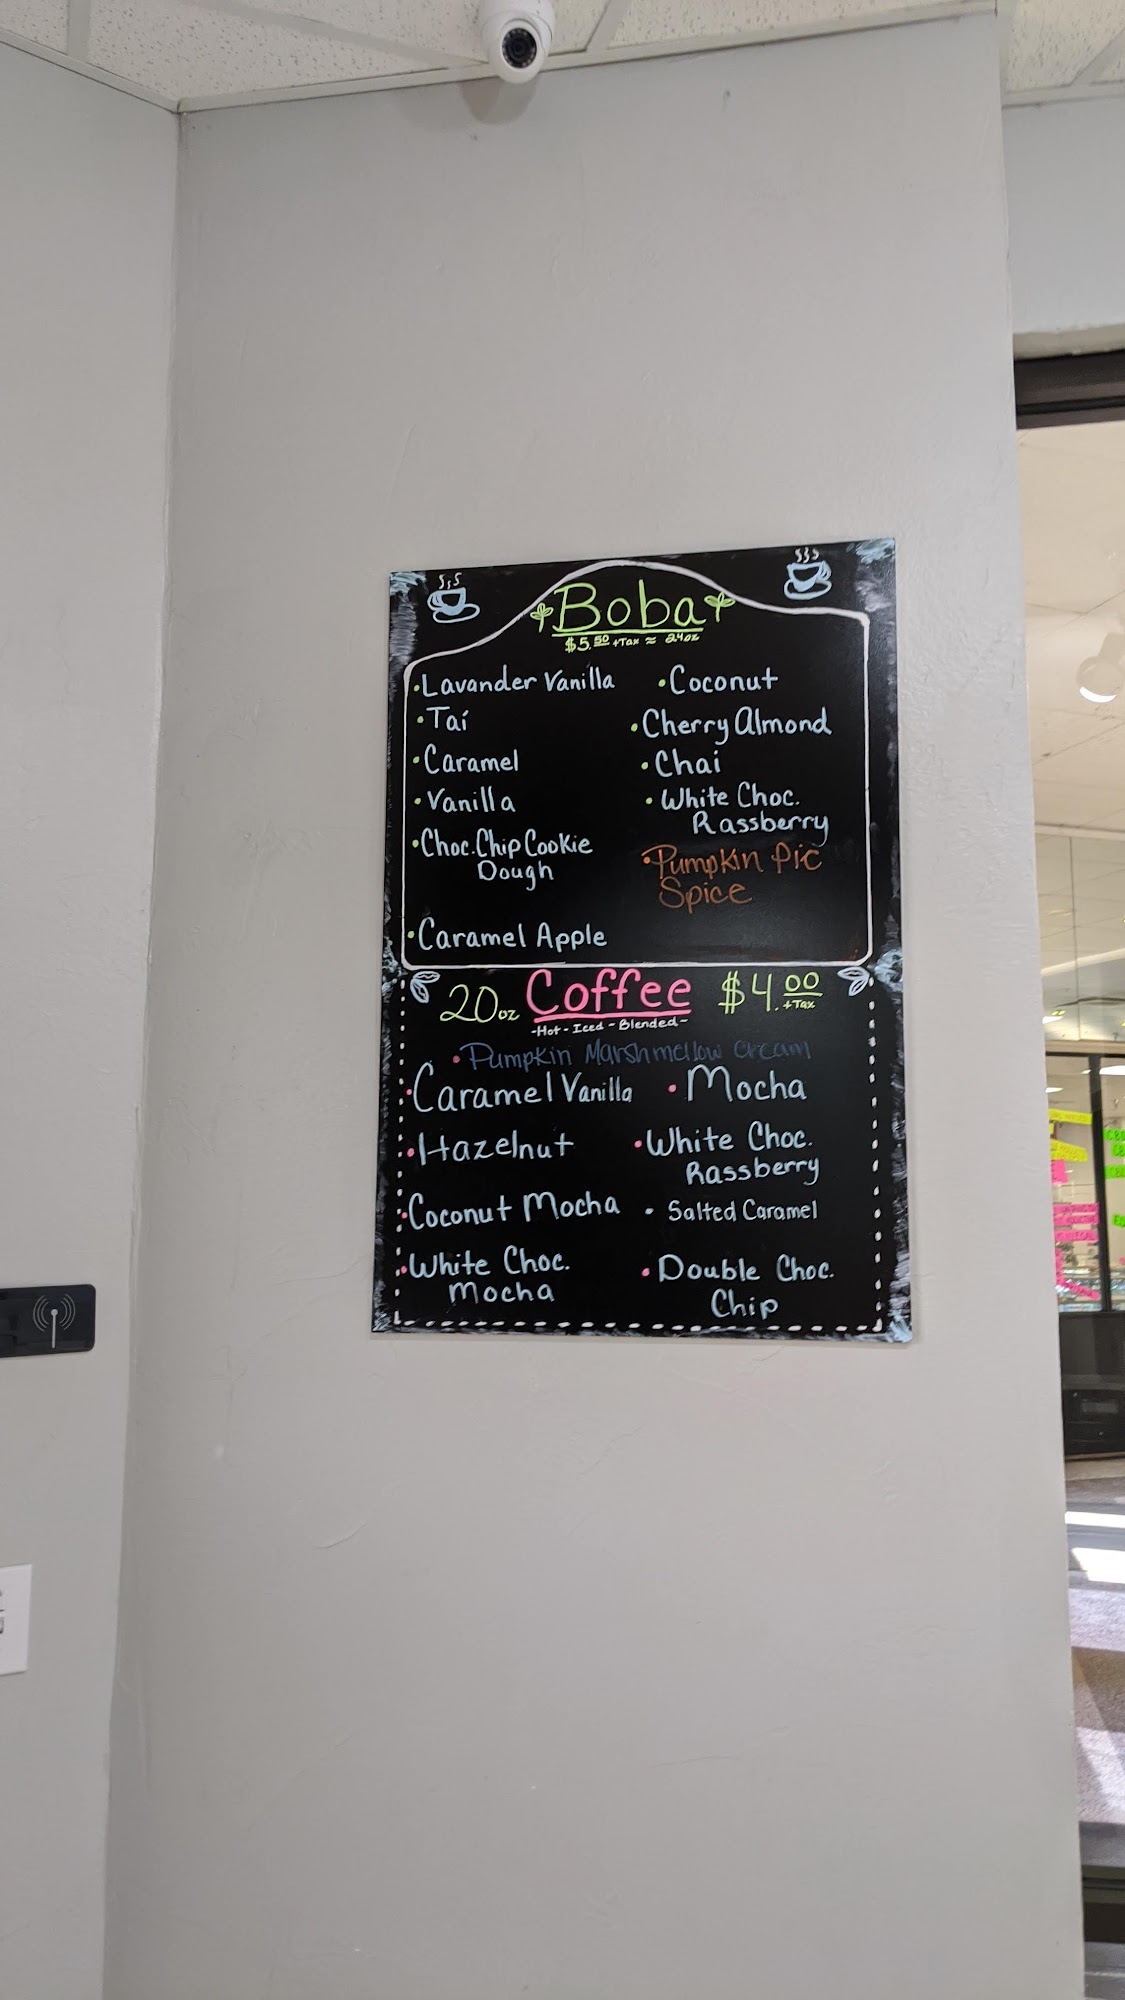 Boba
$5.50 +Tax ≈ 24oz
•Lavander Vanilla
•Taí
•Caramel
•Vanilla
•Choc. Chip Cookie
Dough
•Caramel Apple
•Coconut
•Cherry Almond
•Chai
•White Choc.
Rassberry
•Pumpkin Pie
Spice
20oz Coffee $4.00
+Tax
-Hot - Iced - Blended-
•Pumpkin Marshmellow Cream
•Caramel Vanilla
•Hazelnut
•Coconut Mocha
•White Choc.
Mocha
•Mocha
•White Choc.
Rassberry
• Salted Caramel
•Double Choc.
Chip